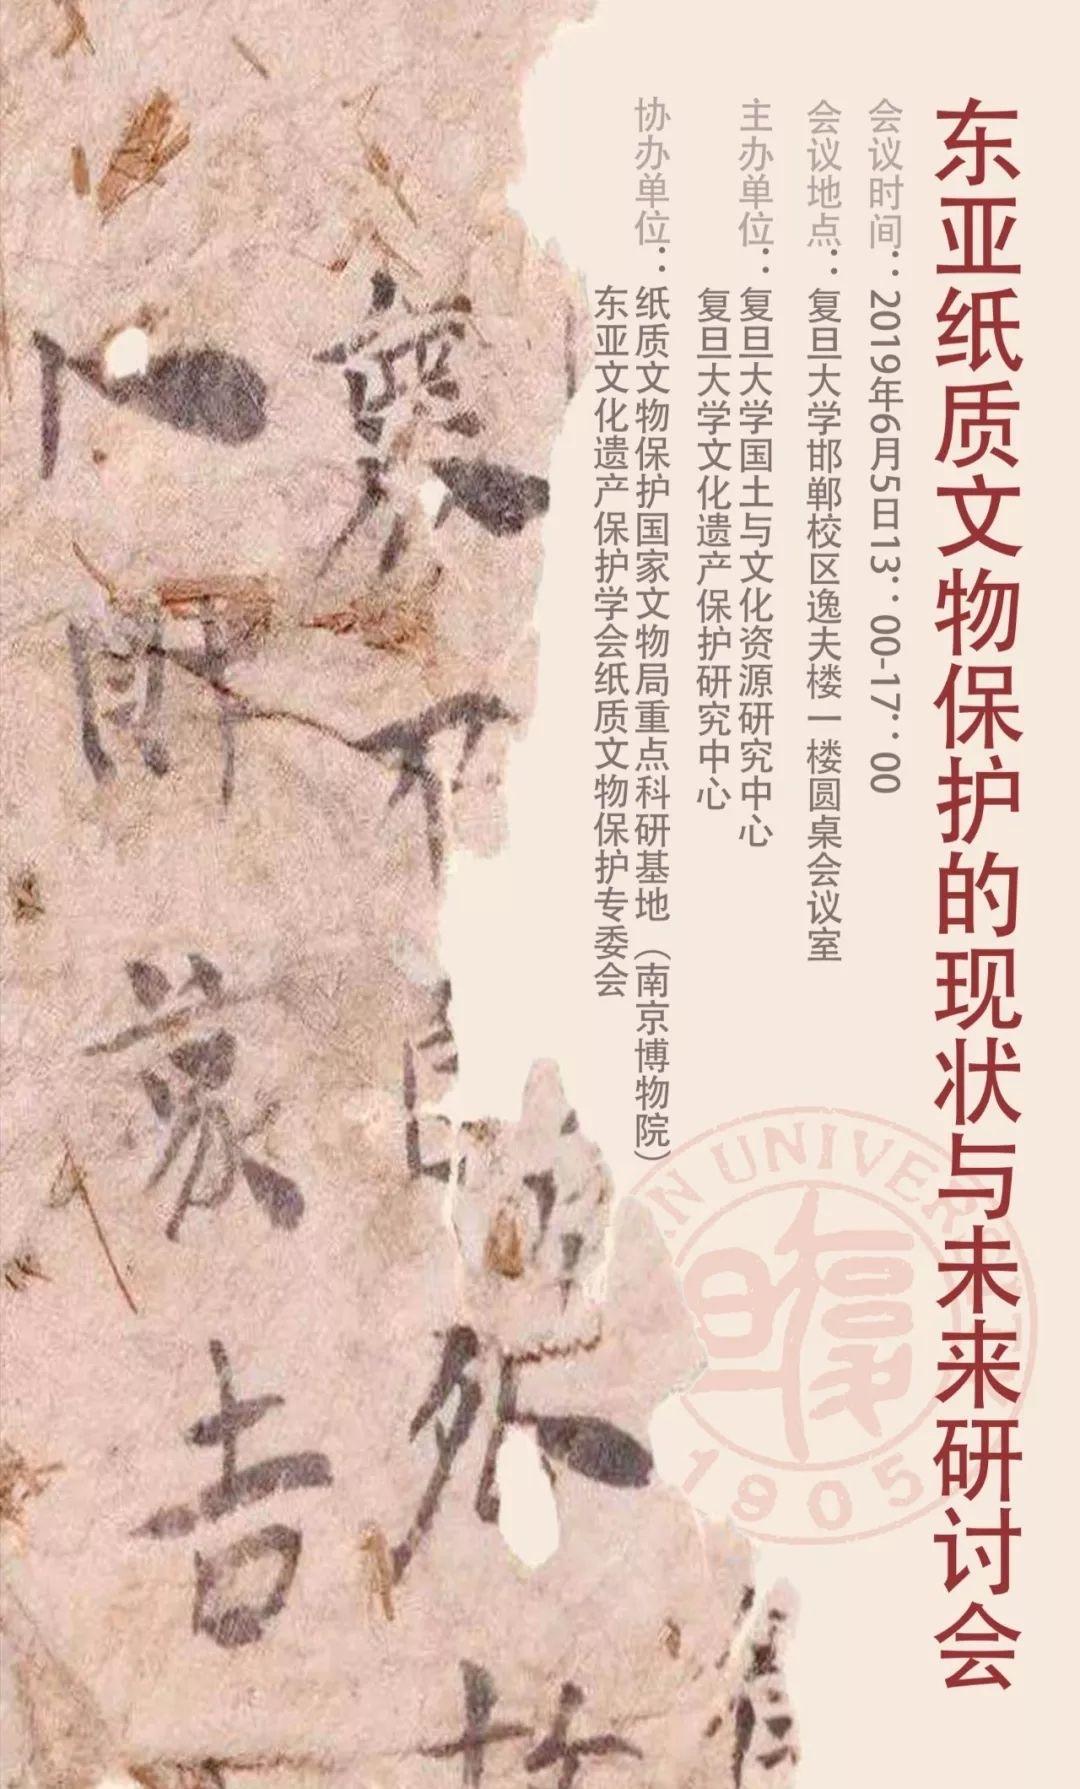 东亚纸质文物保护的现状与未来研讨会
会议时间：2019年6月5日13：00-17：00
会议地点：复旦大学邯郸校区逸夫楼一楼圆桌会议室
主办单位：复旦大学国土与文化资源研究中心
复旦大学文化遗产保护研究中心
协办单位：纸质文物保护国家文物局重点科研基地（南京博物院）
东亚文化遗产保护学会纸质文物保护专委会
UNIVERSIT
復旦
1905
吉